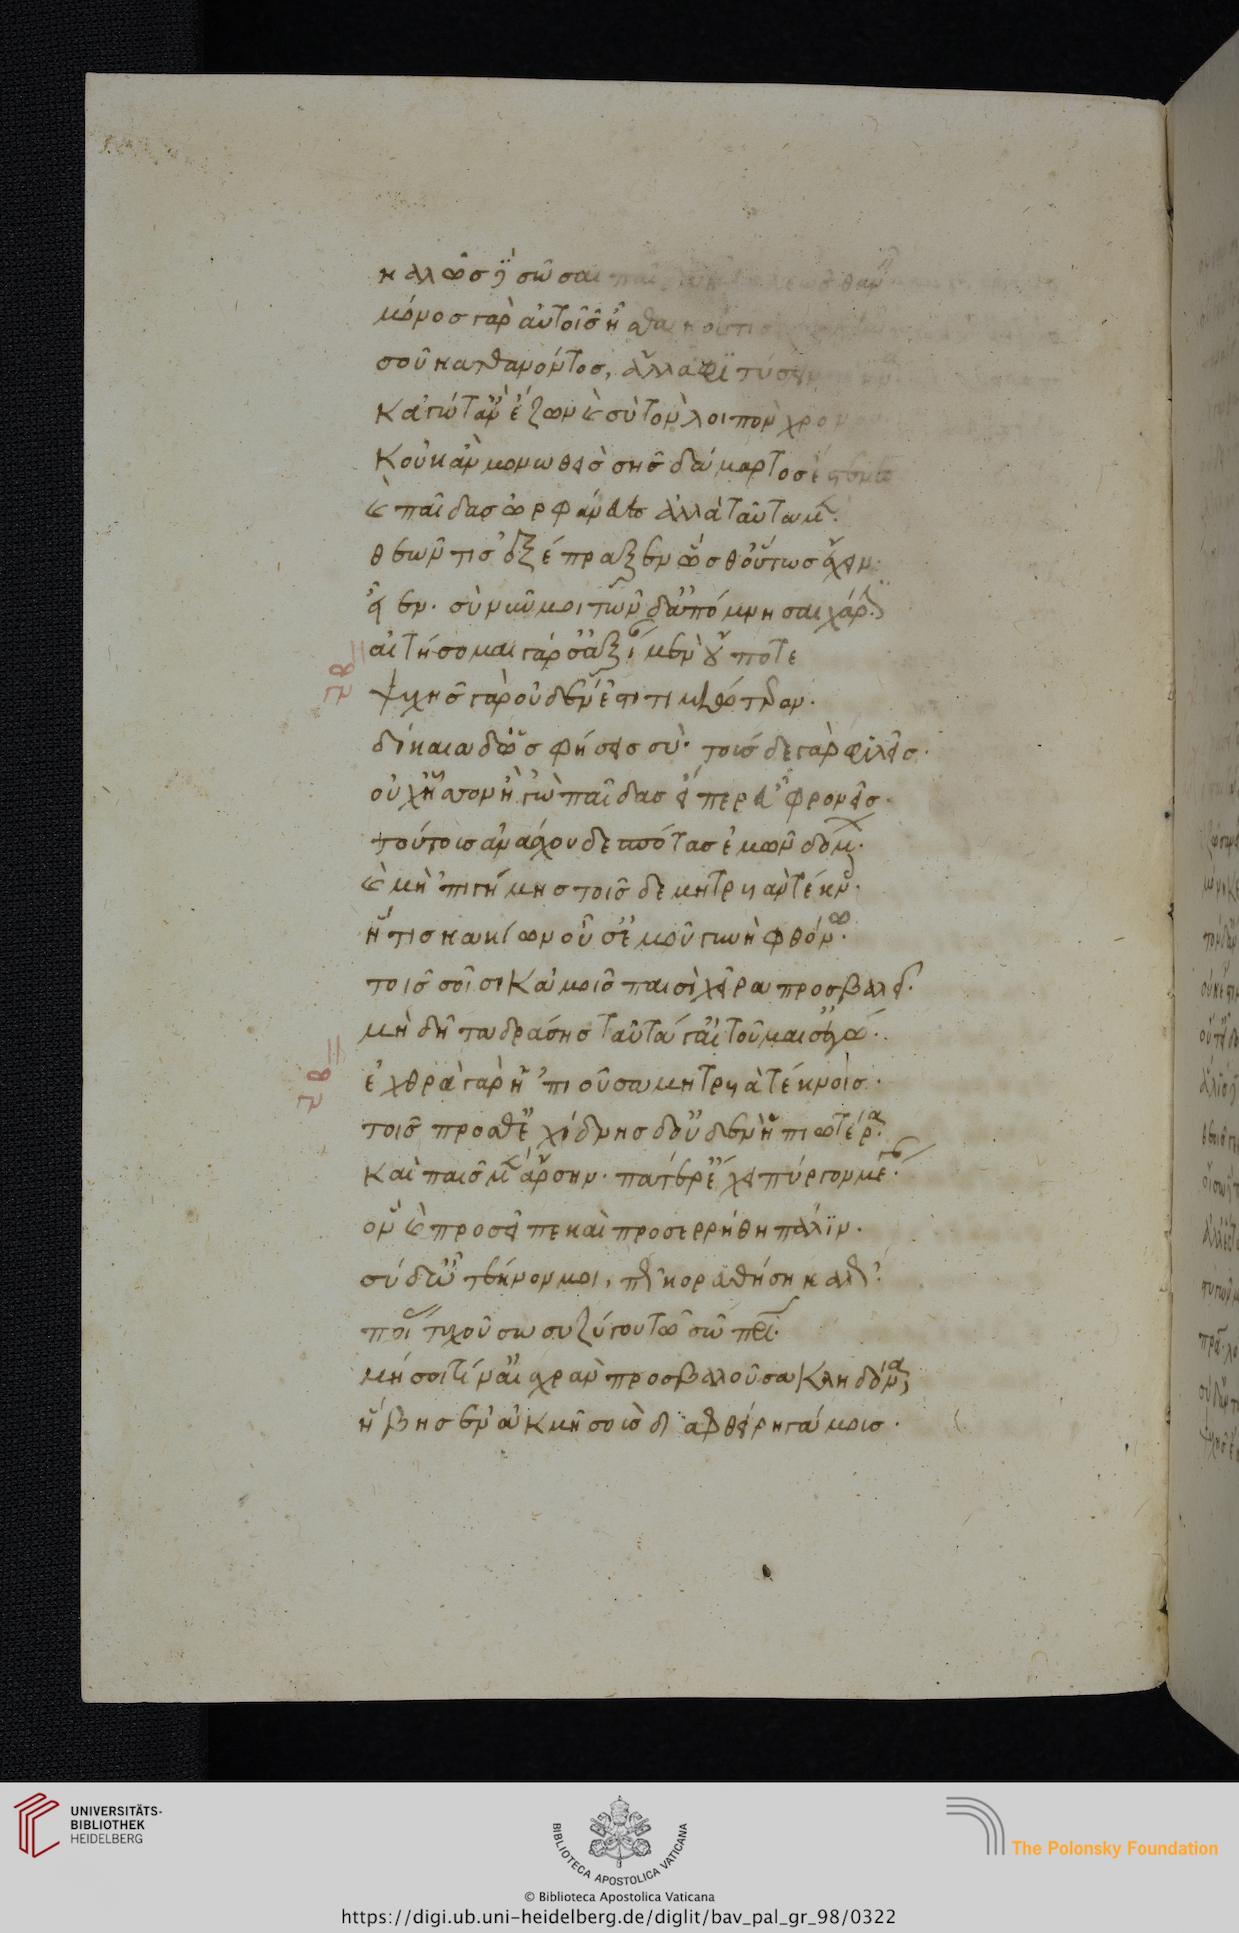 καλῶς δὲ σῶσαι παῖδα θαν
μόνος γὰρ αὐτοῖς ἦσθα κοὔτις
σοῦ κατθανόντος, ἄλλα φιτύσειν
κἀγώ τ' ἂν ἔζων καὶ σὺ τὸν λοιπὸν χρόνον
κοὐκ ἂν μονωθεὶς σῆς δάμαρτος ἔστενες
καὶ παῖδας ὠρφάνευες ἀλλὰ ταῦτα μὲν·
θεῶν τις ἐξέπραξεν ὥσθ' οὕτως ἔχειν·
εἶεν· σὺ νῦν μοι τῶνδ' ἀπόμνησαι χάριν·
αἰτήσομαι γάρ σ' ἀξίαν μὲν οὔποτε
ψυχῆς γὰρ οὐδέν ἐστι τιμιώτερον·
δίκαια δ' ὡς φήσεις σύ· τούσδε γὰρ φιλεῖς·
οὐχ ἧσσον ἢ 'γὼ παῖδας εἴπερ εὖ φρονεῖς·
τούτοις ἀνάσχου δεσπότας ἐμῶν δόμων·
καὶ μὴ 'πιγήμῃς τοῖσδε μητρυιὰν τέκνοις·
ἥτις κακίων οὖσ' ἐμοῦ γυνὴ φθόνῳ·
τοῖς σοῖσι κἀμοῖς παισὶ χεῖρα προσβαλεῖ·
μὴ δῆτα δράσῃς ταῦτά γ' αἰτοῦμαί σ' ἐγώ·
ἐχθρὰ γὰρ ἡ 'πιοῦσα μητρυιὰ τέκνοις·
τοῖς πρόσθ' ἐχίδνης δ' οὐδὲν ἠπιωτέρα·
καὶ παῖς μὲν ἄρσην· πατέρ' ἔχει πύργον μέγαν·
ὃν καὶ προσεῖπε καὶ προσερρήθη πάλιν·
σύ δ' ὦ τέκνον μοι, πῶς κορευθήσῃ καλῶς·
ποίας τυχοῦσα συζύγου τῷ σῷ πατρί·
μή σοί τιν' αἰσχρὰν προσβαλοῦσα κληδόνα,
ἥβης ἐν ἀκμῇ σοὺς διαφθείρῃ γάμοις·
UNIVERSITÄTS-
BIBLIOTHEK
HEIDELBERG
BIBLIOTECA APOSTOLICA VATICANA
The Polonsky Foundation
© Biblioteca Apostolica Vaticana
https://digi.ub.uni-heidelberg.de/diglit/bav_pal_gr_98/0322